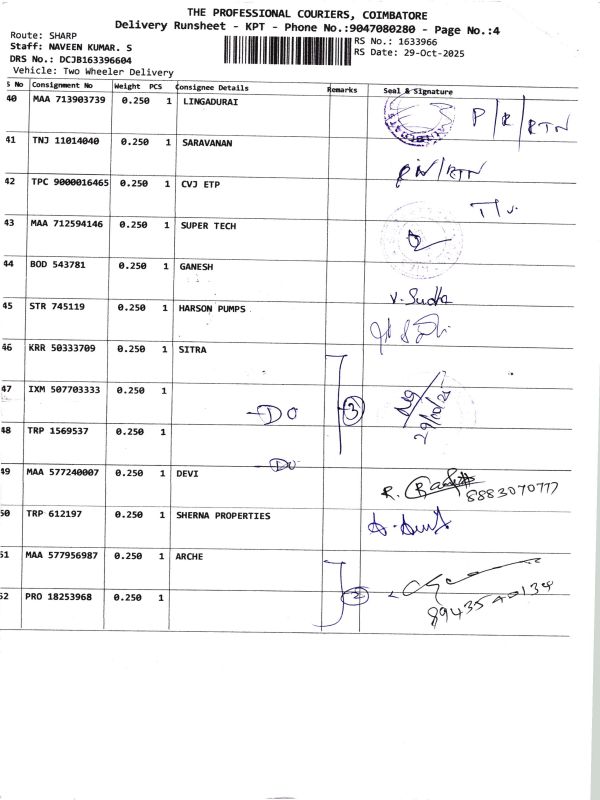 THE PROFESSIONAL COURIERS, COIMBATORE
Delivery Runsheet - KPT - Phone No.:9047080280 - Page No.:4
Route: SHARP
RS No.: 1633966
Staff: NAVEEN KUMAR. S
RS Date: 29-Oct-2025
DRS No.: DCJB163396604
Vehicle: Two Wheeler Delivery
S No Consignment No Weight PCS Consignee Details Remarks Seal & Signature
40 MAA 713903739 0.250 1 LINGADURAI P/R/RTN
41 TNJ 11014040 0.250 1 SARAVANAN
42 TPC 9000016465 0.250 1 CVJ ETP
43 MAA 712594146 0.250 1 SUPER TECH
44 BOD 543781 0.250 1 GANESH V. Sudha
45 STR 745119 0.250 1 HARSON PUMPS
46 KRR 50333709 0.250 1 SITRA
47 IXM 507703333 0.250 1 -DO 3 29/10/25
48 TRP 1569537 0.250 1 -DO
49 MAA 577240007 0.250 1 DEVI R. 8883070777
50 TRP 612197 0.250 1 SHERNA PROPERTIES
51 MAA 577956987 0.250 1 ARCHE
52 PRO 18253968 0.250 1 2 8943540134